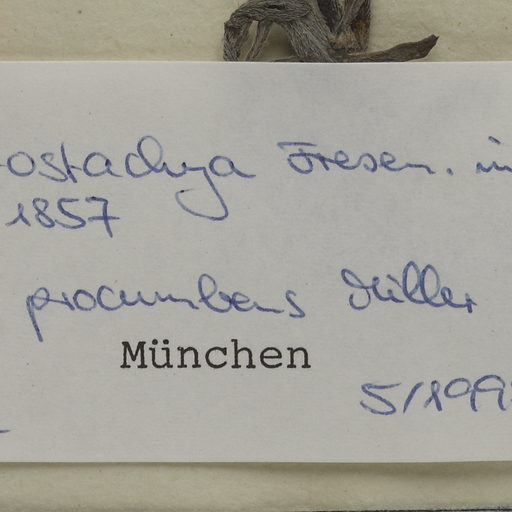 ostachya Fresen. in
1857
procumbens Miller
München
5/199